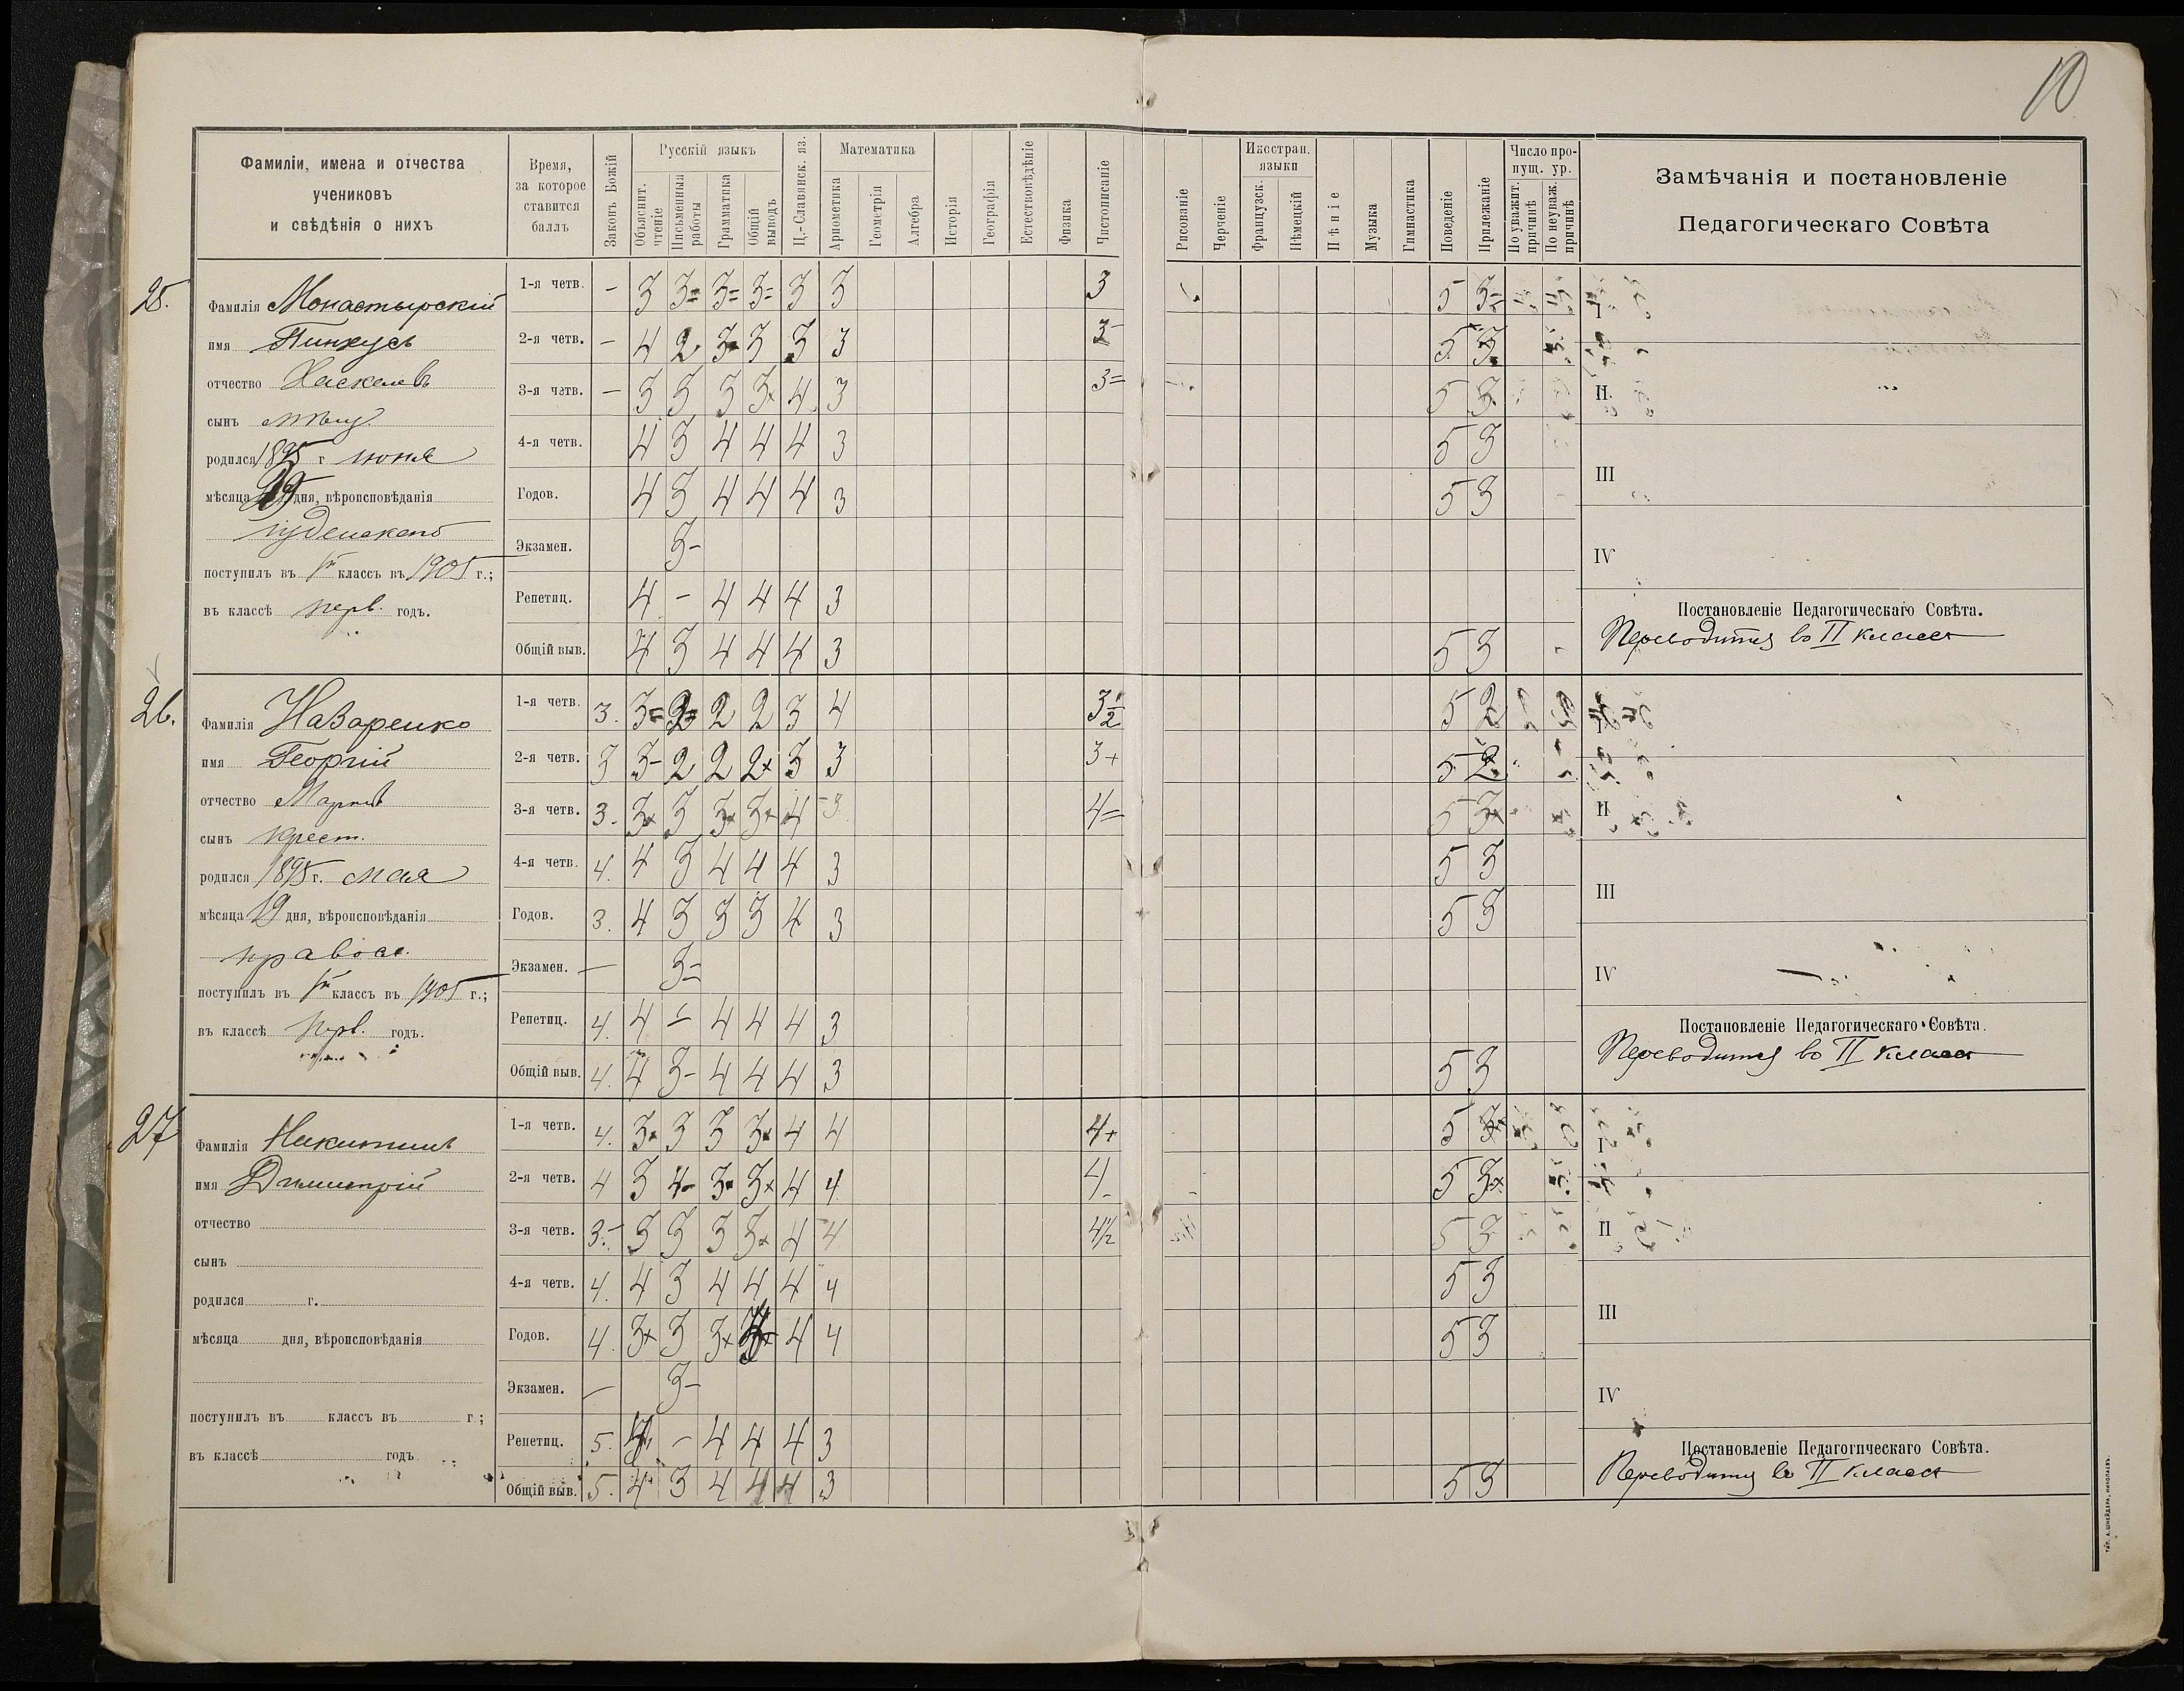 10
Фамиліи, имена и отчества
учениковъ
и свѣдѣнія о нихъ
Время,
за которое
ставится
баллъ
Законъ Божій
Русскій языкъ
Объяснит. чтеніе
Письменныя работы
Грамматика
Общій выводъ
Ц.-Славянск. яз.
Математика
Ариѳметика
Геометрія
Алгебра
Исторія
Географія
Естествовѣдѣніе
Физика
Чистописаніе
Рисованіе
Черченіе
Иностран.
языки
Французск.
Нѣмецкій
Пѣніе
Музыка
Гимнастика
Поведеніе
Прилежаніе
Число про-
пущ. ур.
По уважит. причинѣ
По неуваж. причинѣ
Замѣчанія и постановленіе
Педагогическаго Совѣта
25.
Фамилія Монастырскій
имя Пинхусъ
отчество Хаскелевъ
сынъ мѣщ.
родился 1895 г. июня
мѣсяца 29 дня, вѣроисповѣданія
іудейскаго
поступилъ въ Iй классъ въ 1905 г.;
въ классѣ перв. годъ.
1-я четв. – 3 3= 3= 3= 3 3 3 5 3=
2-я четв. – 4 2 3 3 3 3 3- 5 3
3-я четв. – 3 3 3 3+ 4 3 3= 5 3
4-я четв. 4 3 4 4 4 3 5 3
Годов. 4 3 4 4 4 3 5 3
Экзамен. 3-
Репетиц. 4 – 4 4 4 3
Общій выв. 4 3 4 4 4 3 5 3
I
II
III
IV
Постановленіе Педагогическаго Совѣта.
Переводится во II классъ
26.
Фамилія Назаренко
имя Георгій
отчество Марковъ
сынъ крест.
родился 1895 г. мая
мѣсяца 19 дня, вѣроисповѣданія
правосл.
поступилъ въ Iй классъ въ 1905 г.;
въ классѣ перв. годъ.
1-я четв. 3. 3= 2= 2 2 3 4 3½ 5 2
2-я четв. 3 3- 2 2 2+ 3 3 3+ 5 2
3-я четв. 3. 3+ 3 3+ 3+ 4 3 4= 5 3+
4-я четв. 4. 4 3 4 4 4 3 5 3
Годов. 3. 4 3 3 3 4 3 5 3
Экзамен. – 3=
Репетиц. 4. 4 – 4 4 4 3
Общій выв. 4. 4 3- 4 4 4 3 5 3
I
II
III
IV
Постановленіе Педагогическаго Совѣта.
Переводится во II классъ
27
Фамилія Никитинъ
имя Димитрій
отчество
сынъ
родился г.
мѣсяца дня, вѣроисповѣданія
поступилъ въ классъ въ г;
въ классѣ годъ
1-я четв. 4. 3+ 3 3 3+ 4 4 4+ 5 3+
2-я четв. 4 3 4- 3 3+ 4 4 4- 5 3+
3-я четв. 3.- 3 3 3 3+ 4 4 4½ 5 3
4-я четв. 4. 4 3 4 4 4 4 5 3
Годов. 4. 3+ 3 3+ 3+ 4 4 5 3
Экзамен. – 3-
Репетиц. 5. 4 – 4 4 4 3
Общій выв. 5. 4 3 4 4 4 3 5 3
I
II
III
IV
Постановленіе Педагогическаго Совѣта.
Переводится во II классъ
Тип. А. Шнейдера, Николаевъ.